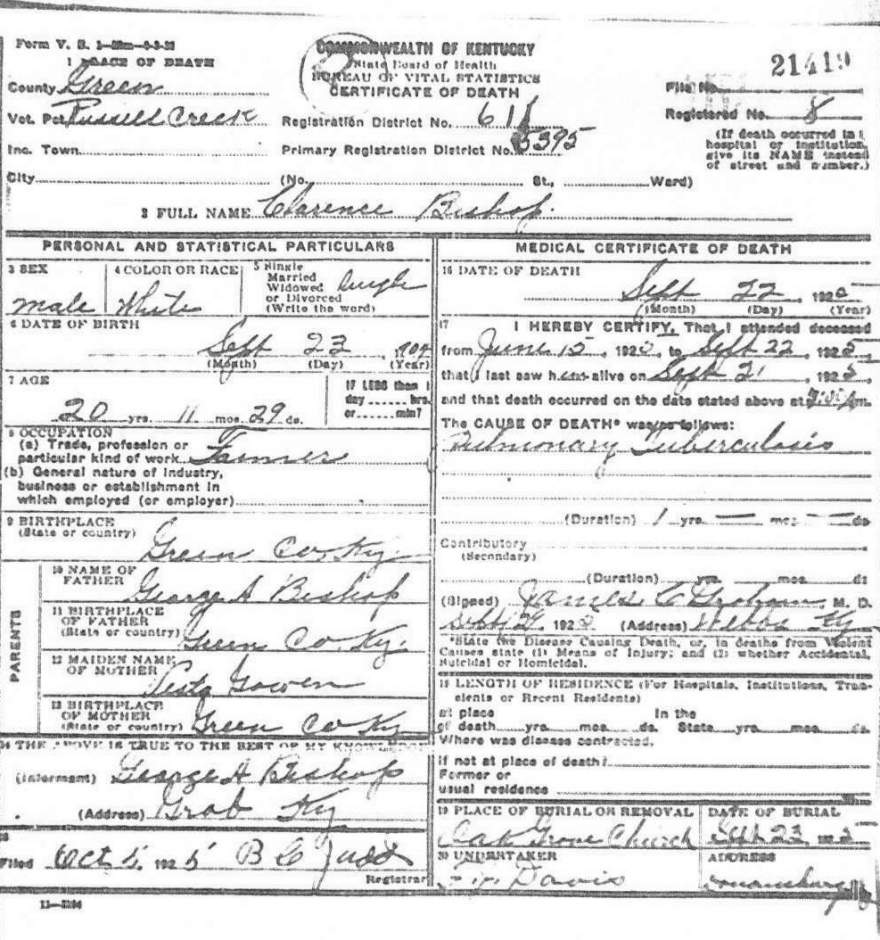 Form V. S.
COMMONWEALTH OF KENTUCKY
State Board of Health
BUREAU OF VITAL STATISTICS
CERTIFICATE OF DEATH
21419
File No.
Registered No. 8
(If death occurred in a hospital or institution, give its NAME instead of street and number.)
1 PLACE OF DEATH
County Green
Vot. Pct Russell Creek
Registration District No. 611
Inc. Town
Primary Registration District No. 5395
City (No. St., Ward)
2 FULL NAME Clarence Bishop
PERSONAL AND STATISTICAL PARTICULARS
3 SEX
male
4 COLOR OR RACE
White
5 Single
Married
Widowed
or Divorced
(Write the word)
Single
6 DATE OF BIRTH
Sept 23
(Month) (Day) (Year)
7 AGE
20 yrs. 11 mos. 29 ds.
IF LESS than 1
day hrs.
or min?
8 OCCUPATION
(a) Trade, profession or
particular kind of work Farmer
(b) General nature of industry,
business or establishment in
which employed (or employer)
9 BIRTHPLACE
(State or country)
Green Co Ky.
PARENTS
10 NAME OF
FATHER
George A Bishop
11 BIRTHPLACE
OF FATHER
(State or country)
Green Co. Ky.
12 MAIDEN NAME
OF MOTHER
Gowen
13 BIRTHPLACE
OF MOTHER
(State or country)
Green Co Ky
14 THE ABOVE IS TRUE TO THE BEST OF MY KNOWLEDGE
(Informant) George A Bishop
(Address) Grab Ky
15
Filed Oct 5, 1925 B C Judd
Registrar
MEDICAL CERTIFICATE OF DEATH
16 DATE OF DEATH
Sept 22, 1925
(Month) (Day) (Year)
17
I HEREBY CERTIFY, That I attended deceased
from June 15, 1925, to Sept 22, 1925,
that I last saw him alive on Sept 21, 1925,
and that death occurred on the date stated above at m.
The CAUSE OF DEATH* was as follows:
Pulmonary Tuberculosis
(Duration) 1 yrs. — mos. — ds
Contributory
(Secondary)
(Duration) yrs. mos. ds
(Signed) James C Graham, M. D.
Sept 1925 (Address) Webbs Ky
*State the Disease Causing Death, or, in deaths from Violent
Causes state (1) Means of Injury; and (2) whether Accidental,
Suicidal or Homicidal.
18 LENGTH OF RESIDENCE (For Hospitals, Institutions, Tran-
sients or Recent Residents)
At place In the
of death yrs. mos. ds. State yrs. mos. ds.
Where was disease contracted,
if not at place of death?
Former or
usual residence
19 PLACE OF BURIAL OR REMOVAL
Oak Grove Church
DATE OF BURIAL
Sept 23, 1925
20 UNDERTAKER
Davis
ADDRESS